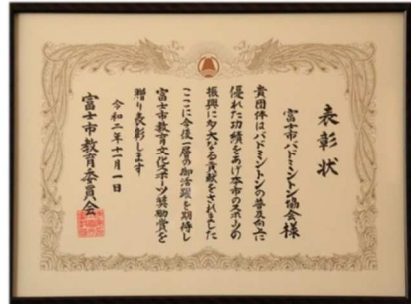 表彰状
富士市バドミントン協会様
貴団体はバドミントンの普及向上に
優れた功績をあげ本市のスポーツの
振興に多大なる貢献をされました
ここに今後一層の御活躍を期待し
富士市教育文化スポーツ奨励賞を
贈り表彰します
令和二年十一月一日
富士市教育委員会